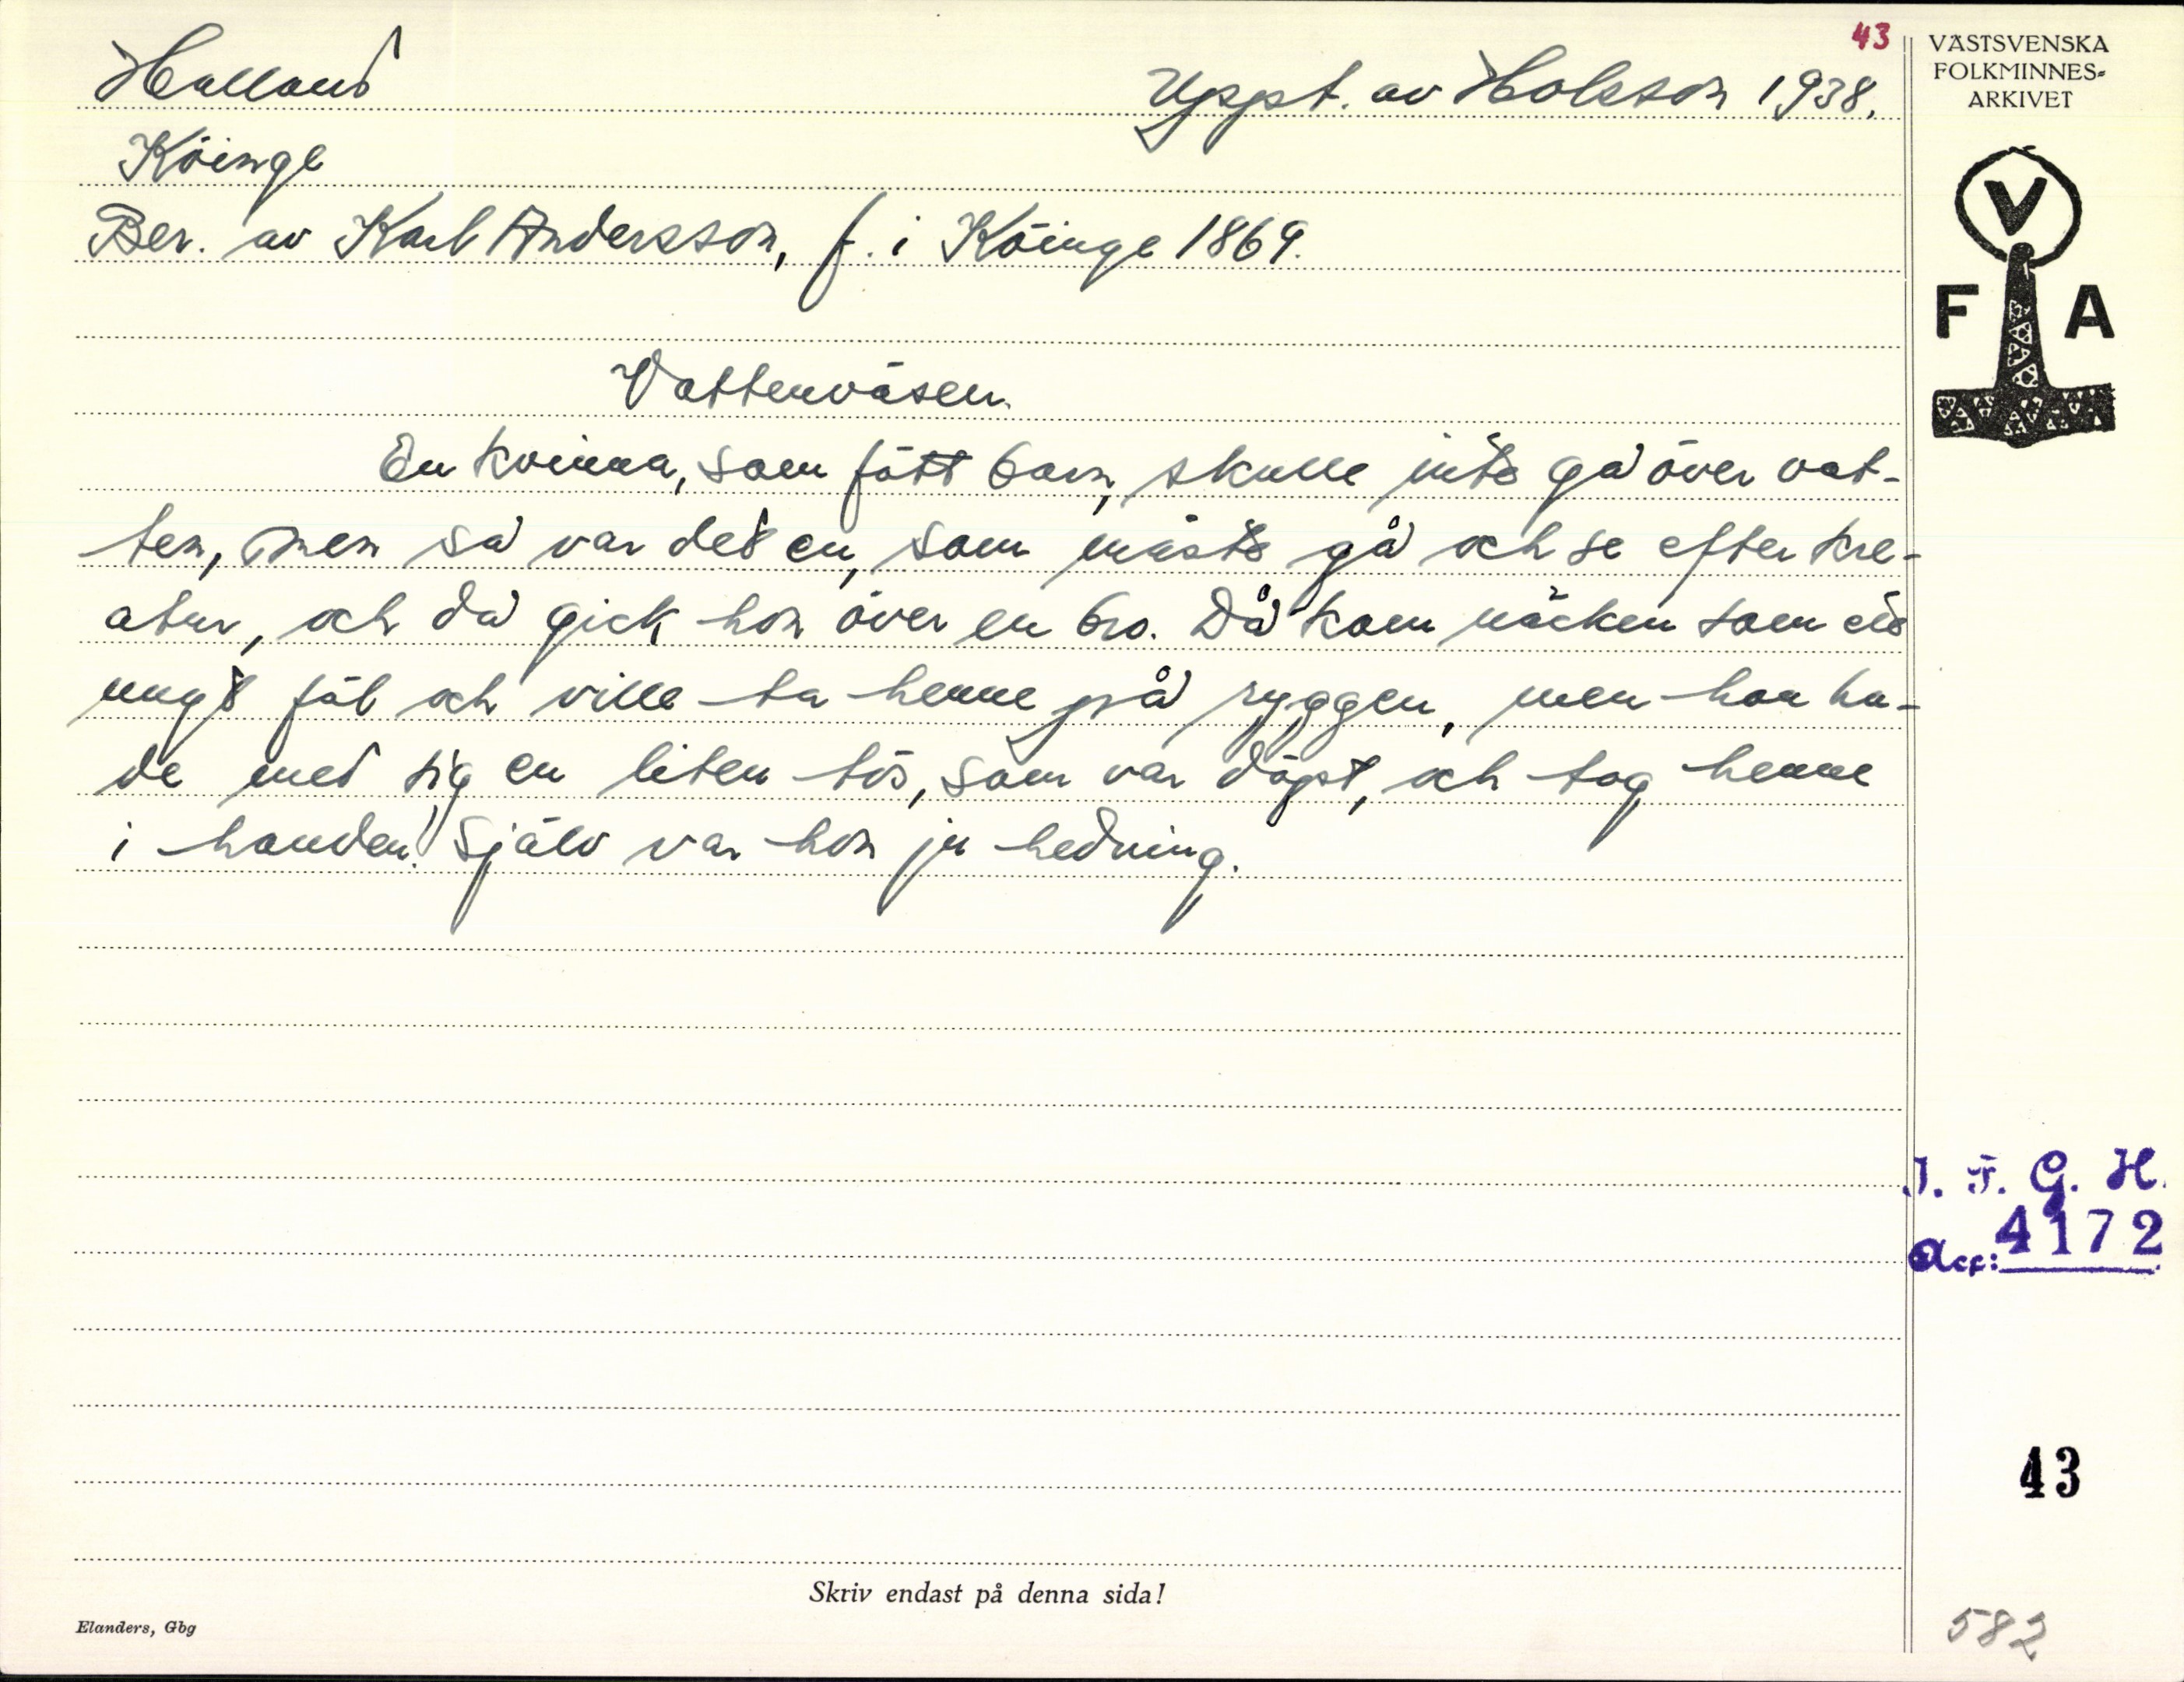 43
Halland
Uppt. av Holsson 1938.
Köinge
Ber. av Karl Andersson, f. i Köinge 1869.
Vattenväsen.
En kvinna, som fått barn, skulle inte gå över vat-
ten, men så var det en, som måste gå och se efter kre-
atur, och då gick hon över en bro. Då kom näcken som ett
ungt föl och ville ta henne på ryggen, men hon ha-
de med sig en liten tös, som var döpt, och tog henne
i handen. Själv var hon ju hedning.
Skriv endast på denna sida!
Elanders, Gbg
VÄSTSVENSKA
FOLKMINNES-
ARKIVET
V
F A
I. F. G. H.
Acc: 4172
43
582